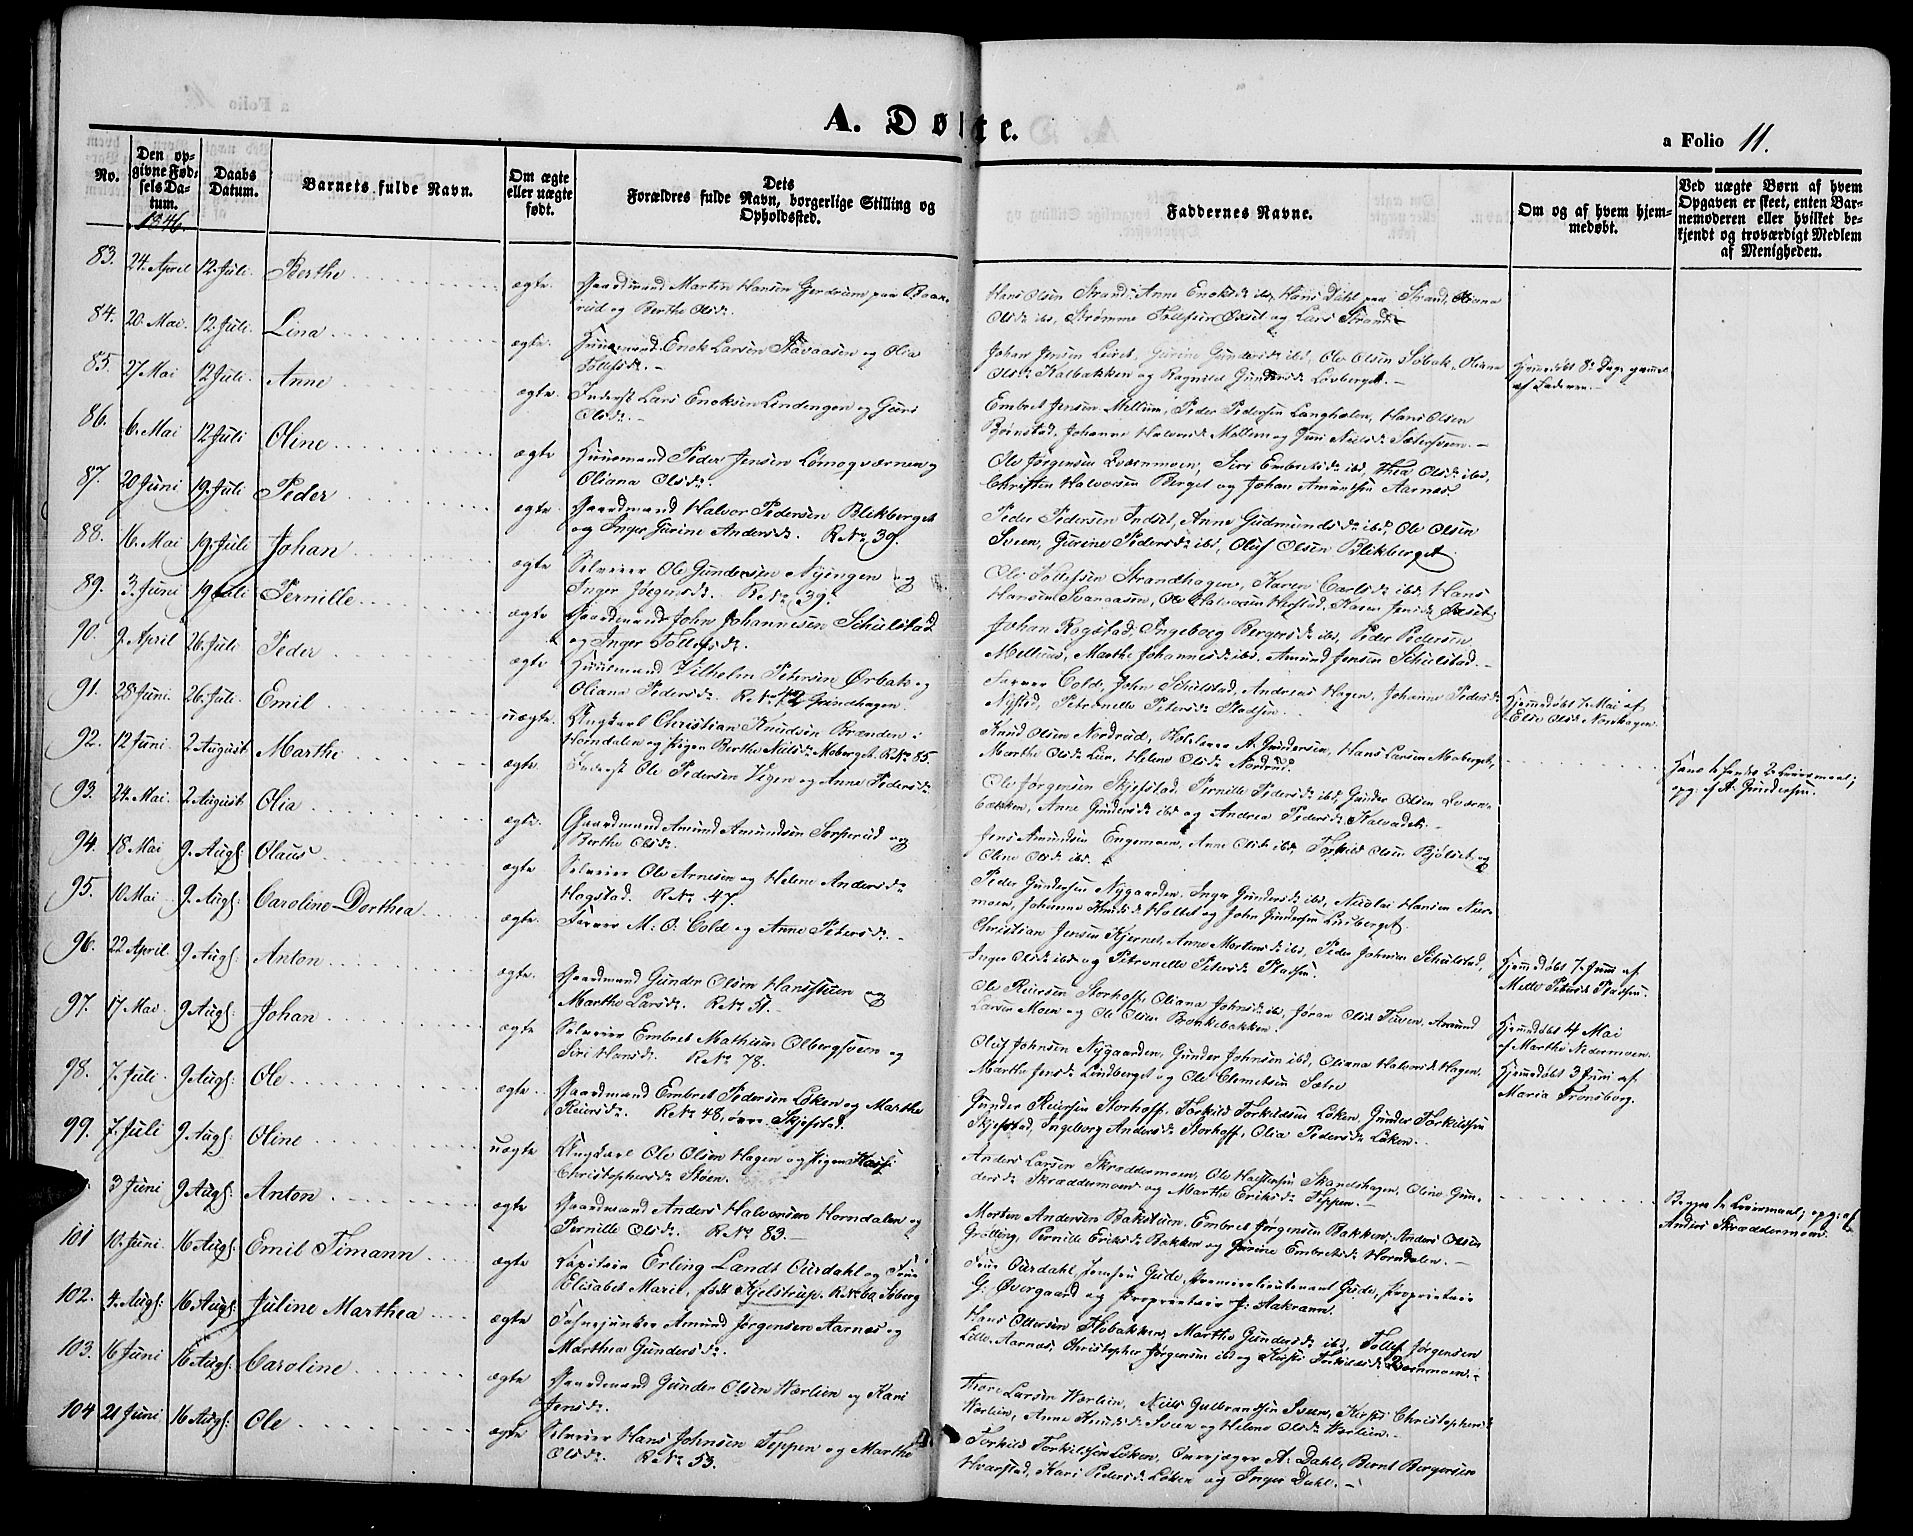 A. Døbte.
a Folio 11.
No.
Den op-
givne Fød-
sels Da-
tum.
1846.
Daabs
Datum.
Barnets fulde Navn.
Om ægte
eller uægte
født.
Dets
Forældres fulde Navn, borgerlige Stilling og
Opholdssted.
Faddernes Navne.
Om og af hvem hjem-
medøbt.
Ved uægte Børn af hvem
Opgaven er skeet, enten Bar-
nemoderen eller hvilket be-
kjendt og troværdigt Medlem
af Menigheden.
83. 24. April 12. Juli Berthe ægte Gaardmand Martin Hansen Gerdrum paa
og Berthe Olsdr.
Hans Olsen Strand, Anne Enoksdr ibd, Hans Dahl paa Strand, Oliana
Olsdr ibd, Strømme Tollefsen Øxset og Lars Strand.
84. 20. Mai. 12. Juli Lina ægte Huusmand Enok Larsen Stavaasen og Olia
Tollefsdr.
Johan Jensen Leiret, Gurine Gundersdr ibd, Ole Olsen Søbak, Oliana
Olsdr Kalbakken og Ragnild Gundersdr Løvberget.
85. 27 Mai 12 Juli Anne ægte Inderst Lars Enoksen Lindengen og Guri
Olsdr.
Embret Jensen Mellum, Peder Pedersen Langholen, Hans Olsen
Børnstad, Johanne Halvorsdr Mellem og Guri Nielsdr Sætersveen.
Hjemmedøbt 8 Dage gammel
af Faderen.
86. 6. Mai 12 Juli Oline ægte Huusmand Peder Jensen Lomoqværnen og
Oliana Olsdr.
Ole Jørgensen Qvernmoen, Siri Embretsdr ibd, Thea Olsdr ibd,
Christen Halvorsen Berget og Johan Amundsen Aarnæs.
87. 20 Juni 19. Juli Peder ægte Gaardmand Halvor Pedersen Blikberget
og Inger Gurine Andersdr. R.No 39.
Peder Pedersen Indset, Anne Gudmundsdr ibd, Ole Olsen
Sveen, Gurine Pedersdr ibd, Oluf Olsen Blikberget.
88. 16. Mai 19. Juli Johan ægte Selveier Ole Gundersen Nyingen og
Inger Jørgensdr. R.No 39.
Ole Tollefsen Strandhagen, Karen Carlsdr ibd, Hans
Hansen Svanaasen, Ole Halvorsen Herstad, Karen Jensdr Øxset.
89. 3. Juni 19 Juli Pernille ægte Gaardmand John Johannesen Schulstad
og Inger Tollefsdr.
Johan Rogstad, Ingeborg Bergersdr ibd, Peder Pedersen
Mellum, Marthe Johannesdr ibd, Amund Jensen Schulstad.
90. 9. April 26. Juli Peder ægte Huusmand Vilhelm Petersen Ørbak og
Oliana Pedersdr. R.No 42 Grindhagen.
Farver Cold, John Schulstad, Andreas Hagen, Johanne Pedersdr
Nysted, Petronelle Petersdr Stadsen.
Hjemmedøbt 7. Mai af
Elin Olsdr Nordhagen.
91. 28 Juni 26. Juli. Emil uægte Ungkarl Christian Knudsen Brænden i
Horndalen og Pigen Berthe Nielsdr Moberget. R.No 85.
Knud Olsen Nordrud, Kirkesanger A. Gundersen, Hans Larsen Moeberget,
Marthe Olsdr Lien, Helene Olsdr Nordrud.
Hans 1. hendes 2. Leiermaal;
opg. af A. Gundersen.
92. 12 Juni. 2 August Marthe ægte Inderst Ole Pedersen Vigen og Anne Pedersdr
Ole Jørgensen Skjefstad, Pernille Pedersdr ibd, Gunder Olsen Qværn-
bækken, Anne Gundersdr ibd og Andrea Pedersdr Kalvadet.
93. 24. Mai. 2 August Olia ægte Gaardmand Amund Amundsen Sorperud og
Berthe Olsdr.
Jens Amundsen Engemoen, Anne Olsdr ibd, Torkild Olsen Bjølset og
Oline Olsdr ibd.
94. 18 Mai 9. Augs: Olaus ægte Selveier Ole Arnesen og Helene Andersdr
Hogstad. R.No 47.
Peder Gundersen Nygaarden, Inger Gundersdr ibd, Nicolai Hansen Neer-
moen, Johanne Knudsdr Holtet og John Gundersen Linberget.
95. 10 Mai 9. Augs: Caroline Dorthea ægte Farver M. O. Cold og Anne Petersdr.
Christian Jensen Kjernet, Anne Mortensdr ibd, Peder Johnsen Schulstad,
Inger Olsdr ibd og Petronelle Petersdr Stadsen.
Hjemmedøbt 7. Juni af
Mette Petersdr Stadsen.
96. 22 April 9 Augs: Anton ægte Gaardmand Gunder Olsen Hansstuen og
Marthe Larsdr. R.No 51.
Ole Reiersen Storhoff, Oliana Johnsdr ib, Jøran Olsdr Tuven, Amund
Larsen Moen og Ole Olsen Bronkebakken.
Hjemmedøbt 4 Mai
af Marthe Nedermoen.
97. 17 Mai 9 Augs: Johan ægte Selveier Embret Mathisen Olbergsveen og
Siri Hansdr. R.No 78.
Oluf Johnsen Nygaarden, Gunder Johnsen ibd, Oliana Halvorsdr Hagen,
Marthe Jensdr Lindberget og Ole Clemetsen Sætre
Hjemmedøbt 3 Juni af
Maria Tronsborg.
98. 7. Juli 9 Augs: Ole ægte Gaardmand Embret Pedersen Løken og Marthe
Reiersdr. R.No 48, øvre Skjefstad.
Gunder Reiersen Storhoff, Torkild Torkildsen Løken, Gunder Torkildsen
Skjefstad, Ingeborg Andersdr Storhoff, Olia Pedersdr Løken.
99. 7. Juli 9 Augs: Oline uægte Ungkarl Ole Olsen Hagen og Pigen
Christophersdr Støen.
Anders Larsen Skræddermoen, Ole Halstensen Skandshagen, Oline Gun-
dersdr Skræddermoen og Marthe Eriksdr Teppen.
Begges 1. Leiermaal, opg: af
Anders Skræddermoen.
3 Juni 9 Augs: Anton ægte Gaardmand Anders Halvorsen Horndalen og
Pernille Olsdr. R.No 83.
Morten Andersen Bakstuen, Embret Jørgensen Bakken, Anders Olsen
Grølling, Pernille Eriksdr Bakken og Gurine Embretsdr Horndalen.
101 10. Juni 16 Augs: Emil Timann ægte Capitain Erling Landt Ourdahl og Frue
Elisabet Marie, født Kjelstrup. R.No 62 Søberg
Frue Ourdahl, Jomfru Gude, Premierlieutenant Gude, Proprietair
G. Øvergaard og Proprietair J. Aakrann.
102. 4. Augs: 16 Augs: Juline Marthea ægte Fahnejunker Amund Jørgensen Aarnæs og
Marthea Gundersdr.
Hans Ottersen Flobakken, Marthe Gundersdr ibd, Tollef Jørgensen
Lille-Aarnæs, Christopher Jørgensen ibd og Kirsti Torkildsdr Qvernmoen.
103. 16 Juni 16 Augs: Caroline ægte Gaardmand Gunder Olsen Værlien og Kari
Jensdr.
Thore Larsen Værlien, Niels Gulbrandsen Sveen, Kirsti Christophersdr
Værlien, Anne Knudsdr Sveen og Helene Olsdr Værlien.
104 21 Juni 16 Augs: Ole ægte Selveier Hans Johnsen Teppen og Marthe
Olsdr. R.No 53.
Torkild Torkildsen Løken, Overjæger A. Dahl, Bernt Bergersen
Hvarstad, Kari Pedersdr Løken og Inger Dahl.